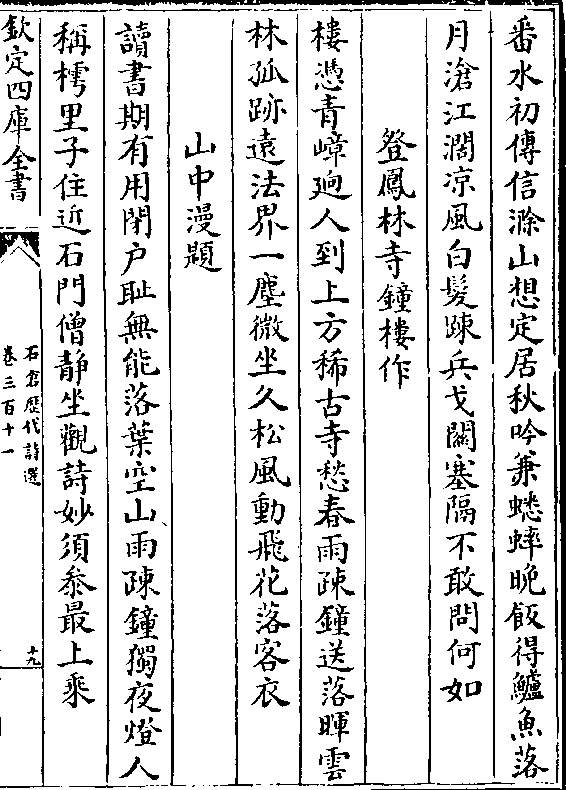 番水初傳信滁山想定居秋吟兼蟋蟀晚飯得鱸魚落
月滄江濶凉風白髮踈兵戈關塞隔不敢問何如
登鳳林寺鐘樓作
樓憑青嶂逈人到上方稀古寺愁春雨踈鐘送落暉雲
林孤跡遠法界一塵微坐久松風動飛花落客衣
山中漫題
讀書期有用閉户耻無能落葉空山雨踈鐘獨夜燈人
稱樗里子住近石門僧靜坐觀詩妙須叅最上乘
欽定四庫全書
石倉歷代詩選
卷三百十一
十九